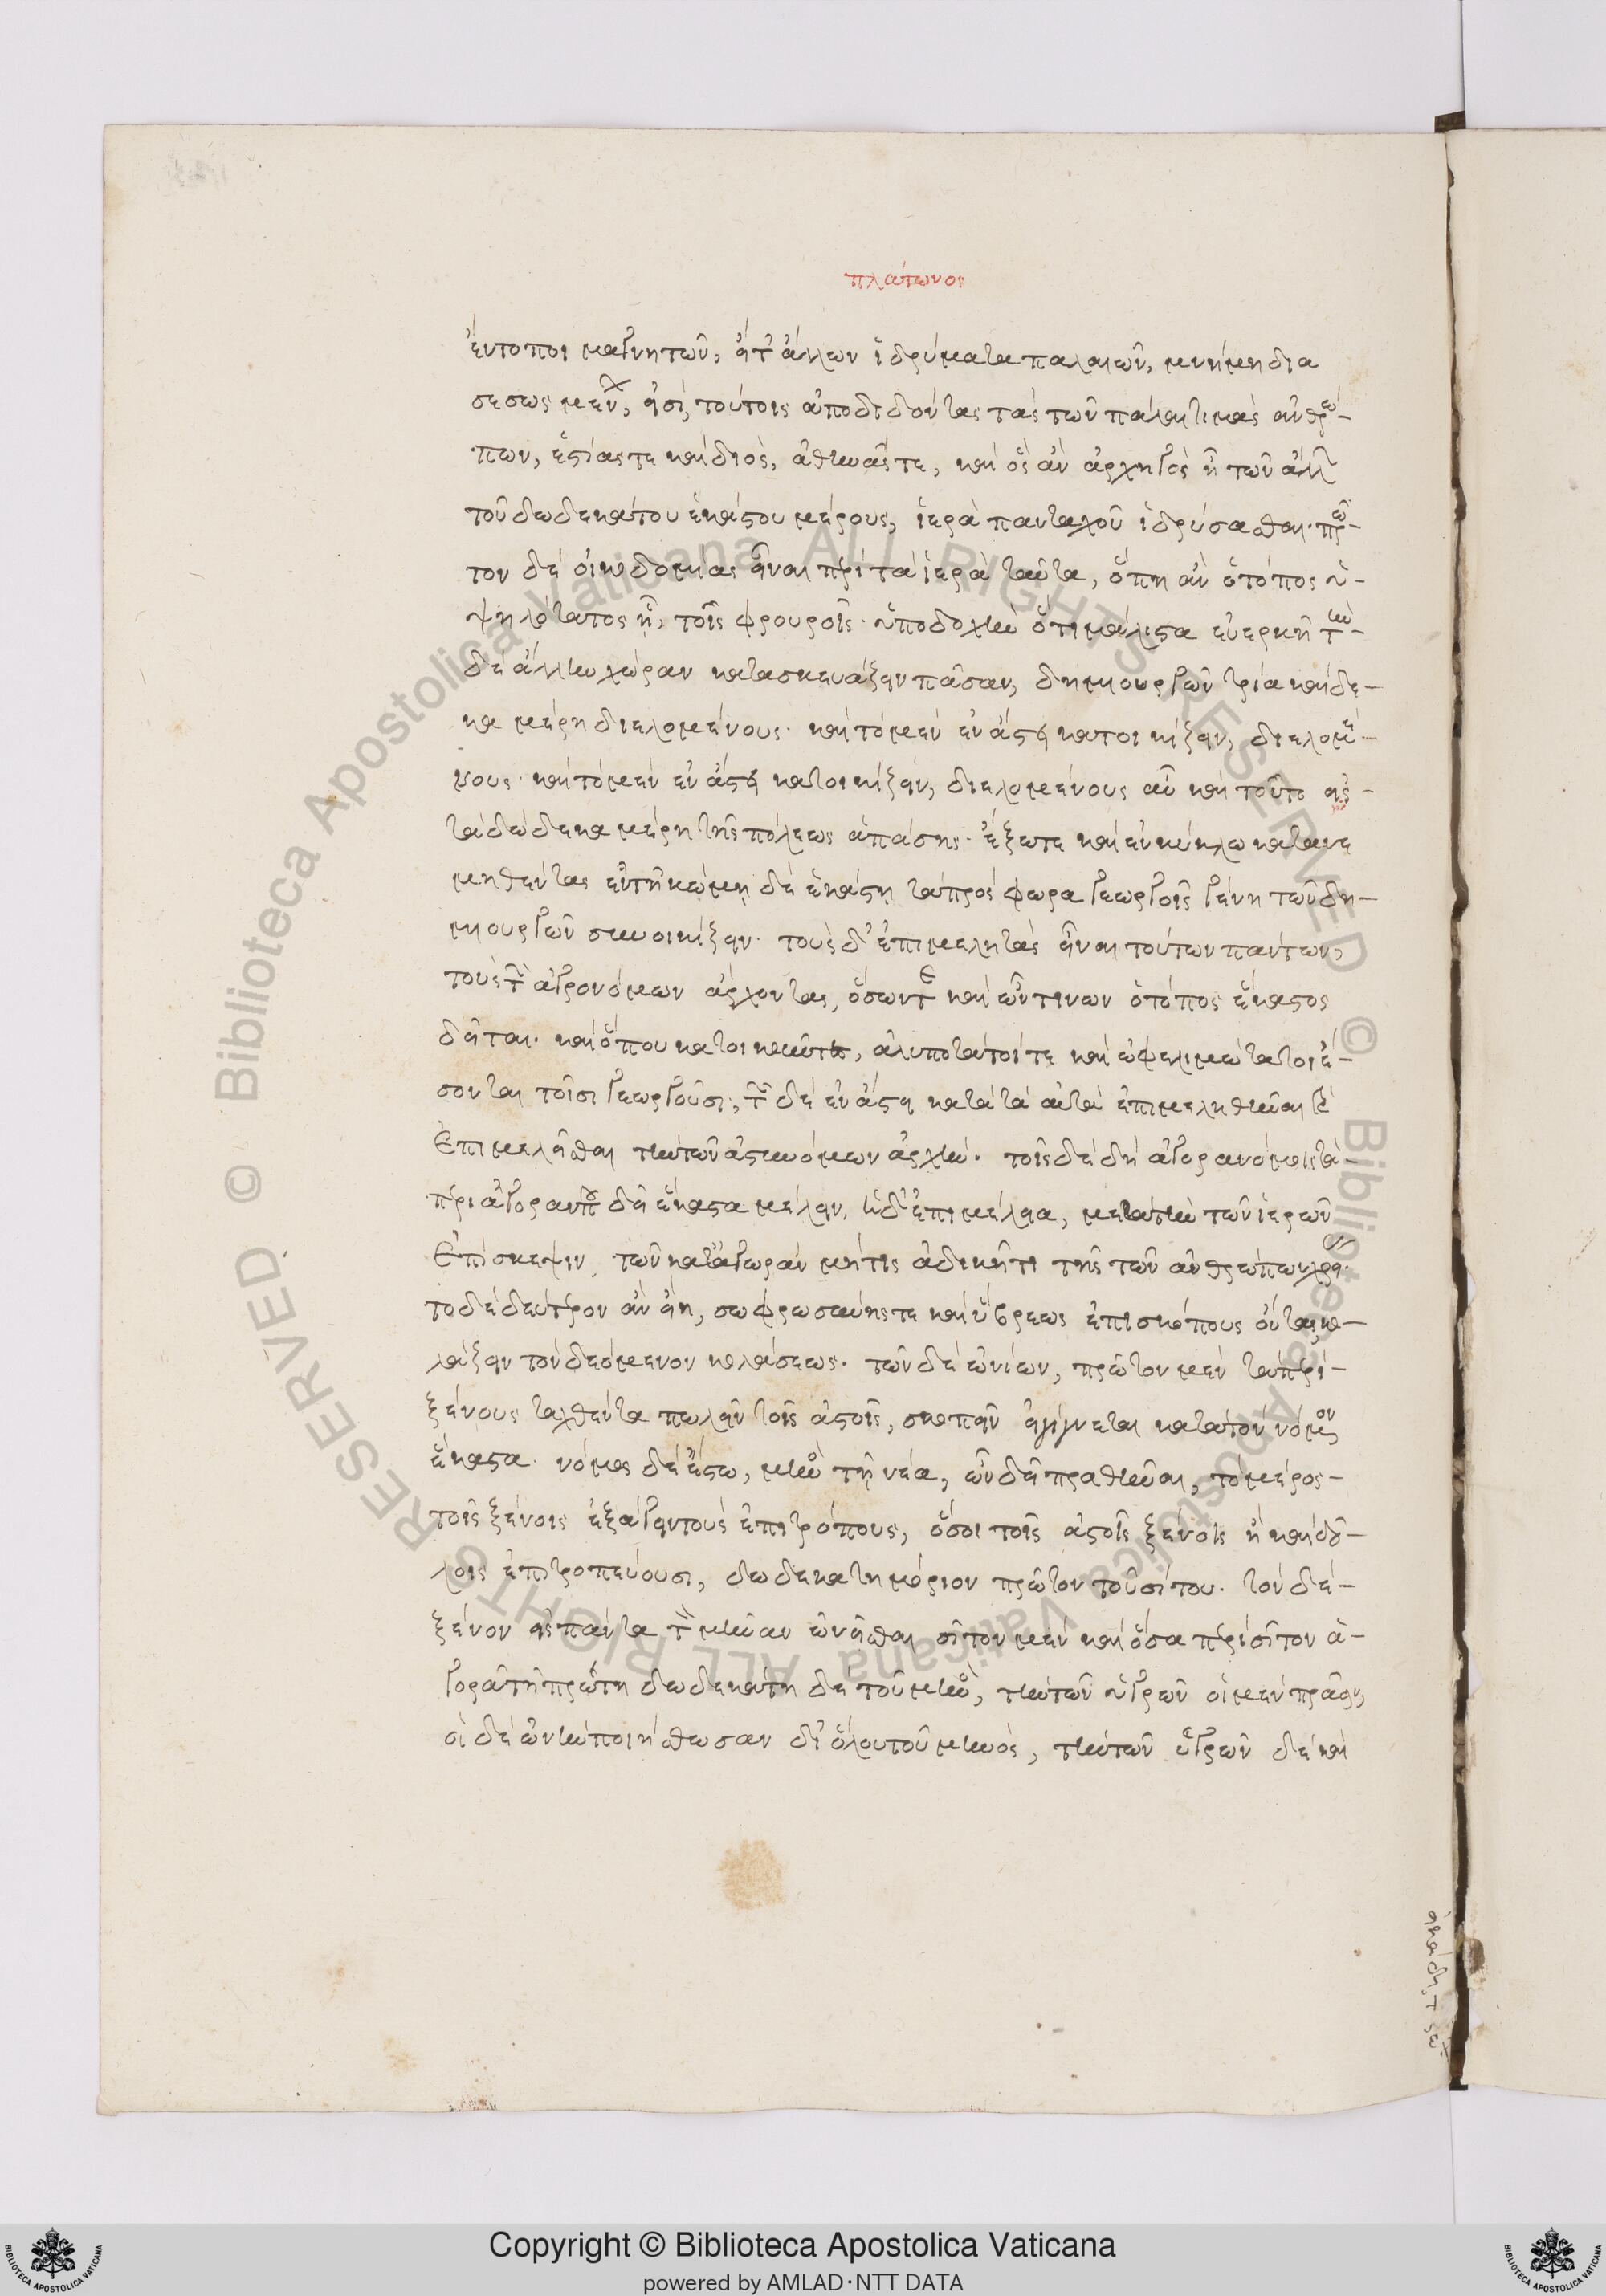 πλάτωνος
ἔντοποι μαγνητῶν, εἴτ' ἄλλων ἱδρύματα παλαιῶν, μνήμη δια
σεσωσμένων, εἰσὶ, τούτοις ἀποδιδόντας τὰς τῶν πάλαι τιμὰς ἀνθρώ-
πων, ἑστίας τε καὶ διὸς, ἀθηνᾶς τε, καὶ ὃς ἂν ἀρχηγὸς ᾖ τῶν ἄλλων
τοῦ δωδεκάτου ἑκάστου μέρους, ἱερὰ πανταχοῦ ἱδρύσασθαι. πρῶ-
τον δὲ οἰκοδομίας εἶναι περὶ τὰ ἱερὰ ταῦτα, ὅπη ἂν ὁ τόπος ὑ-
ψηλότατος ᾖ, τοῖς φρουροῖς. ὑποδοχὴν ὅτι μάλιστα εὐερκῆ τὴν
δὲ ἄλλην χώραν κατασκευάζειν πᾶσαν, δημιουργῶν τρία καὶ δέ-
κα μέρη διελομένους. καὶ τὸ μὲν ἐν ἄστει κατοικίζειν, διελομέ-
νους. καὶ τὸ μὲν ἐν ἄστει κατοικίζειν, διελομένους αὖ καὶ τοῦτο εἰς
τὰ δώδεκα μέρη τῆς πόλεως ἁπάσης. ἔξω τε καὶ ἐν κύκλω κατανε
μηθέντας ἐν τῇ κώμῃ δὲ ἑκάστῃ τὰ πρόσφωρα γεωργοῖς γένη τῶν δη-
μιουργῶν συνοικίζειν. τοὺς δ' ἐπιμελητὰς εἶναι τούτων πάντων,
τοὺς τῶν ἀγρονόμων ἄρχοντας, ὅσων τε καὶ ὧντινων ὁ τόπος ἕκαστος
δεῖται. καὶ ὅπου κατοικοῦντες, ἀλυπότατοί τε καὶ ὠφελιμώτατοι ἔ-
σονται τοῖσι γεωργοῦσι, τῶν δὲ ἐν ἄστει κατὰ τὰ αὐτὰ ἐπιμεληθῆναι καὶ
ἐπιμελεῖσθαι τὴν τῶν ἀστυνόμων ἀρχήν. τοῖς δὲ δὴ ἀγορανόμοις τὰ
περὶ ἀγοράν που δεῖ ἕκαστα μέλειν, ἡ δ' ἐπιμέλεια, μετὰ τὴν τῶν ἱερῶν
ἐπίσκεψιν, τῶν κατ' ἀγωρὰν μή τις ἀδικῇ τι τῆς τῶν ἀνθρώπων χρεί.
τὸ δὲ δεύτερον ἂν εἴη, σωφρωσύνης τε καὶ ὕβρεως ἐπισκόπους ὄντας κο-
λάζειν τὸν δεόμενον κολάσεως. τῶν δὲ ὠνίων, πρῶτον μὲν τὰ περὶ
ξένους ταχθέντα πωλεῖν τοῖς ἀστοῖς, σκοπεῖν εἰ γίγνεται κατὰ τὸν νόμον
ἕκαστα. νόμος δὲ ἔστω, μηνὸς τῇ νέα, ὧν δεῖ πραθῆναι, τὸ μέρος
τοῖς ξένοις ἐξάγειν τοὺς ἐπιτρόπους, ὅσοι τοῖς ἀστοῖς ξένοις ἢ καὶ δοῦ-
λοις ἐπιτροπεύουσι, δωδεκατημόριον πρῶτον τοῦ σίτου. τὸν δὲ
ξένον εἰς πάντα τὸν μῆναν ὠνεῖσθαι σῖτον μὲν καὶ ὅσα περὶ σῖτον ἀ-
γορᾷ τῇ πρώτη δωδεκάτη δὲ τοῦ μηνὸς, τὴν τῶν ὑγρῶν οἱ μὲν πρᾶσιν,
οἱ δὲ ὠνὴν ποιήσθωσαν δι' ὅλου τοῦ μηνὸς, τὴν τῶν ὑγρῶν δὲ καὶ